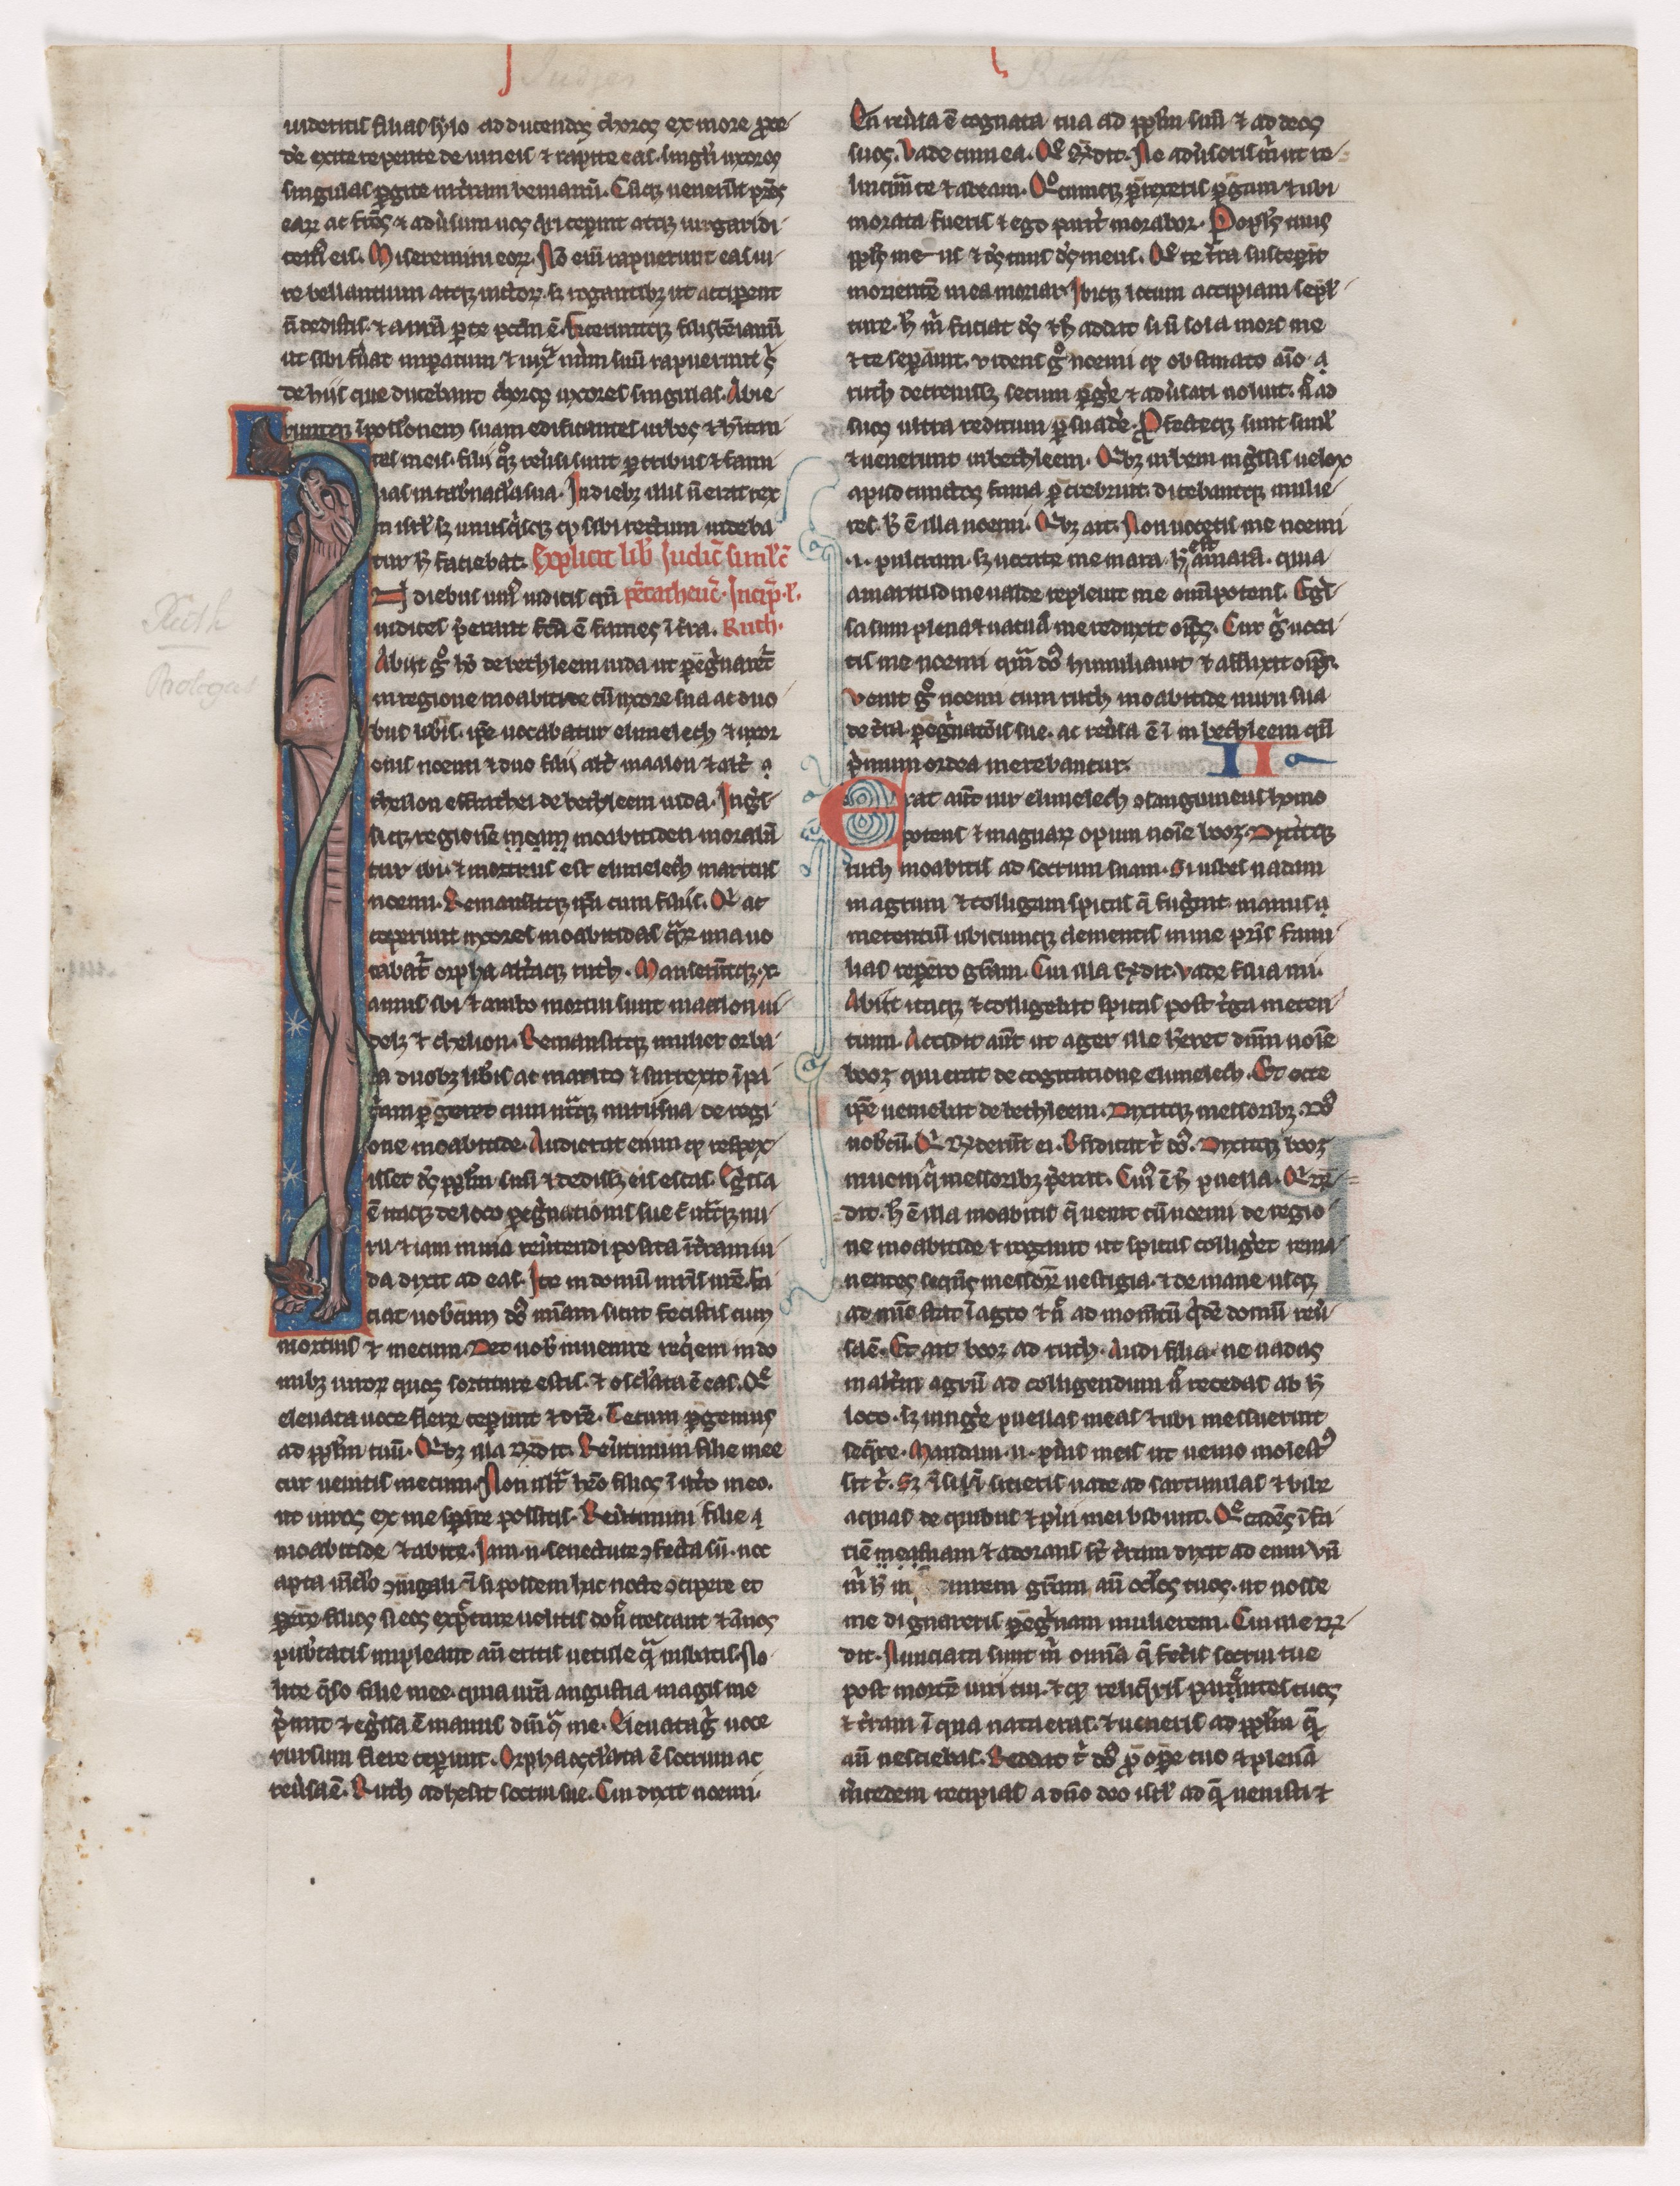 Judges
Ruth
uideritis filias sylo ad ducendos choros ex more proce
de exite repente de uineis & rapite eas singli uxores
singulas pergite in terram beniamin. Cumq; uenerint pres
earum ac fres & aduersum uos queri ceperint atq; iurgari di
cemus eis. Miseremini eorum. No enim rapuerunt eas iu
re bellantium atq; uictorum. sz rogantibz ut acciperent
n dedistis. & a uestra parte pctm e. feceruntq; filii beniamin
ut sibi fuerat imperatum & iuxta numerum suum rapuerunt s
de hiis que ducebant choros uxores singulas. Abie
runtq; i possessionem suam edificantes urbes & habitan
tes in eis. filii quoqz reuersi sunt per tribus & fami
lias in tabernacula sua. In diebz illis n erat rex
in isrl sz unusquisq; quod sibi rectum uideba
tur h faciebat. Explicit lib Judicum
In diebus unius iudicis quando Incip. l.
iudices preerant fca e fames i tra. Ruth.
Abiit g homo de bethleem iuda ut peregrinaretur
in regione moabitide cu uxore sua ac duo
bus libis. ipse uocabatur elimelech & uxor
eius noemi & duo filii alter maalon & alter
chelion effrathei de bethleem iuda. Ingres
siq; regionem moabitidem moraban
tur ibi. & mortuus est elimelech maritus
noemi. Remansitq; ipsa cum filiis. Qi ac
ceperunt uxores moabitidas quarum una uo
cabat orpha altaq; ruth. Manseruntq; x.
annis ibi & ambo mortui sunt maalon ui
delz & chelion. Remansitq; mulier orba
ta duobz libis ac marito & surrexit i pa
triam pergeret cum utraq; nuru sua de regi
one moabitide. Audierat enim quod respex
isset ds pplm suu & dedissz eis escas. Egssa
e itaq; de loco peregrinationis sue c utraq; nu
ru & iam in uia reuertendi posita i terram iu
da dixit ad eas. Ite in domu matris ure. fa
ciat uobcum dns miam sicut fecistis cum
mortuis & mecum. Det uob inuenire requiem in do
mibz uirorum quos sortiture estis. & osclata e eas. Que
eleuata uoce flere ceperunt & dicere. Tecum pergemus
ad pplm tuu. Quibz illa rndit. Reuertimini filie mee
cur uenitis mecum. Non ultra habeo filios i utero meo.
ut uiros ex me sperare possitis. Reuertimini filie
moabitide & abite. Iam n senectute confecta sum. nec
apta uinclo coniugali & si possem hac nocte concipere et
parere filios si eos exspectare uelitis donec crescant & annos
pubertatis impleant an eritis uetule quam nubatis. No
lite queso filie mee. quia uestra angustia magis me
premit & egressa e manus domini contra me. Eleuata g uoce
rursum flere ceperunt. Orpha osclata e socrum ac
reuersa e. Ruth adhesit socrui sue. Cui dixit noemi.
En reuersa e cognata tua ad pplm suu & ad deos
suos. Vade cum ea. Que rndit. Ne aduerseris m ut re
linquam te & abeam. Quocumq; perrexeris pergam & ubi
morata fueris & ego pariter morabor. Populus tuus
pplus meus & ds tuus ds meus. Que te tra susceperit
morientem in ea moriar. Ibiq; locum accipiam sepul
ture. h m faciat ds & h addat si n sola mors me
& te separauerit. Videns g noemi quod obstinato animo
ruth decreuissz secum pergere & aduersari noluit. n ad
suos ultra reditum persuadere. Profecteq; sunt simul
& uenerunt in bethleem. Quibz urbem ingressis uelox
apud cunctos fama percrebruit. dicebantq; mulie
res. h e illa noemi. Quibz ait. Non uocetis me noemi
.i. pulcram. sz uocate me mara. h est amaram. quia
amaritudine ualde repleuit me omnipotens. Egres
sa sum plena & uacuam me reduxit omps. Cur g uoca
tis me noemi quam dns humiliauit & afflixit omps.
Venit g noemi cum ruth moabitide nuru sua
de terra peregrinationis sue. ac reuersa e i in bethleem qn
primum ordea metebantur. II
Erat aut uir elimelech consanguineus homo
potens & magnarum opum noie booz. Dixitq;
ruth moabitis ad socrum suam. Si iubes uadam
in agrum & colligam spicas q fugerint manus
metentium ubicumq; clementis in me patris fami
lias repero gram. Cui illa rndit. Vade filia mi.
Abiit itaq; & colligebat spicas post terga meten
tium. Accidit aut ut ager ille heret dnm noie
booz qui erat de cognatione elimelech. Et ecce
ipse ueniebat de bethleem. Dixitq; messoribz. Dns
uobcu. Qi rnderunt ei. Bndicat t dns. Dixitq; booz
iuueni q messoribz preerat. Cuius e h puella. Qi rn
dit. h e illa moabitis q uenit cu noemi de regio
ne moabitide & rogauit ut spicas colligeret rema
nentes sequens messorum uestigia. & de mane usq;
ad nunc stat i agro & n ad momentum quidem domu reuer
sa e. Et ait booz ad ruth. Audi filia. ne uadas
in alterum agrum ad colligendum n recedas ab h
loco. sz iungere puellas meas & ubi messuerint
sequere. Mandaui n pueris meis ut nemo molestus
sit t. Sz & si sitieris uade ad sarcinulas & bibe
aquas de quibus & pueri mei bibunt. Que cadens i fa
ciem suam & adorans super terram dixit ad eum. Vn
m h ut inuenirem gram an oclos tuos. ut nosse
me dignareris peregrinam mulierem. Cui ille rn
dit. Nunciata sunt m omnia q feceris socrui tue
post mortem uiri tui. & quod reliqueris parentes tuos
& terram i qua nata eras. & ueneris ad pplm quem
an nesciebas. Reddat t dns pro opere tuo & plenam
mercedem recipias a dno deo isrl ad quem uenisti &
Ruth
Prologus